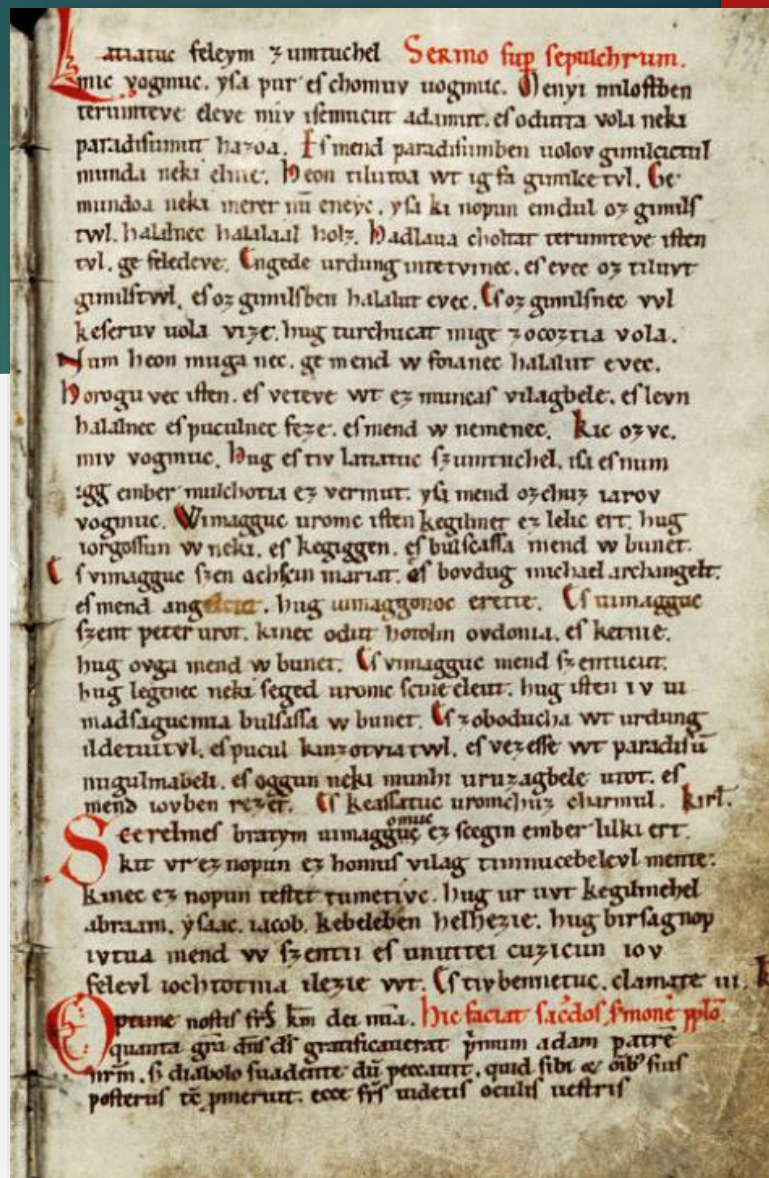 Latiatuc feleym zumtuchel Sermo sup sepulchrum.
mic vogmuc. yſa pur eſ chomuv uogmuc. Menyi miloſtben
terumteve eleve miv iſemucut adamut. eſ odutta vola neki
paradiſumut hazoa. Eſ mend paradiſumben uolov gimilcictul
munda neki elnie. Heon tilutoa wt ig fa gimilce tvl. Ge
mundoa neki meret nū eneyc. yſa ki nopun emdul oz gimilſ
twl. halalnec halalaal holz. Hadlaua choltat terumteve iſten
tvl. ge feledeve. Engede urdung intetvinec. eſ evec oz tiluvt
gimilſtwl. eſ oz gimilſben halalut evec. Eſ oz gimilſnec vvl
keſeruv uola vize. hug turchucat mige zocoztia vola.
Num heon muga nec. ge mend w foianec halalut evec.
Horogu vec iſten. eſ veteve wt ez muncaſ vilagbele. eſ levn
halalnec eſ puculnec feze. eſ mend w nemenec. Kic ozvc.
miv vogmuc. Hug eſ tiv latiatuc ſzumtuchel. iſa eſ num
igg ember mulchotia ez vermut. yſa mend ozchuz iarov
vogmuc. Wimagguc uromc iſten kegilmet ez lelic ert. hug
iorgoſſun w neki. eſ kegiggen. eſ bulſcaſſa mend w bunet.
Eſ vimagguc ſzen achſcin mariat. eſ bovdug michael archangelt.
eſ mend angelcut. hug uimaggonoc erette. Eſ uimagguc
ſzent peter urot. kinec odut hotolm ovdonia. eſ ketnie.
hug ovga mend w bunet. Eſ vimagguc mend ſzentucut.
hug legenec neki ſeged uromc ſcine eleut. hug iſten iv ui
madſagucmia bulſaſſa w bunet. Eſ zoboducha wt urdung
ildetuitvl. eſ pucul kinzotviatwl. eſ vezeſſe wt paradiſū
nugulmabeli. eſ oggun neki munhi uruzagbele utot. eſ
mend iovben rezet. Eſ keaſſatuc uromchuz charmul. kirł.
Scerelmeſ bratym uimagguc omuc ez ſcegin ember lilki ert.
kit vr ez nopun ez homuſ vilag timnucebelevl mente.
kinec ez nopun teſtet tumetivc. hug ur uvt kegilmehel
abraam. yſaac. iacob. kebeleben helhezie. hug birſagnop
ivtua mend vv ſzentii eſ unuttei cuzicun iov
felevl iochtotnia ilezie wt. Eſ tivbennetuc. clamate iii. K
Optime noſtiſ frſ̄ km̄ dei mīa. Hic faciat ſac̄doſ ſmonē pplō.
quanta grā dn̄ſ dſ̄ gratificauerat p̄mum adam patrē
nr̄m. ſi diabolo ſuadente dū peccauit. quid ſibi & oīb' ſuiſ
poſteriſ tc̄ pmeruit. ecce frſ̄ uidetiſ oculiſ ueſtriſ